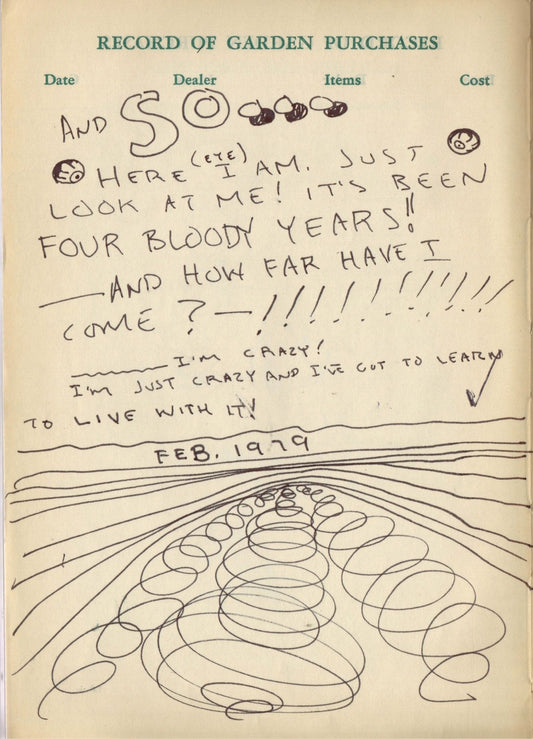 RECORD OF GARDEN PURCHASES
Date Dealer Items Cost
AND SO...
(EYE)
HERE I AM. JUST
LOOK AT ME! IT'S BEEN
FOUR BLOODY YEARS!!
—AND HOW FAR HAVE I
COME?—!!!!!!!!!!!!
—I'M CRAZY!
I'M JUST CRAZY AND I'VE GOT TO LEARN
TO LIVE WITH IT!
FEB. 1979